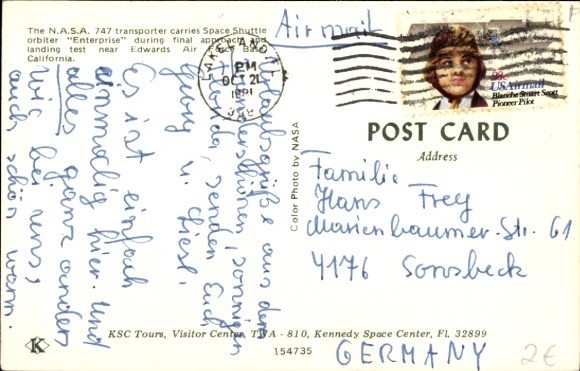 The N.A.S.A. 747 transporter carries Space Shuttle
orbiter "Enterprise" during final approach and
landing test near Edwards Air Force Base
California.
Air mail
LAKELAND, FL
PM
OCT 21
1981
28c
USAirmail
Blanche Stuart Scott
Pioneer Pilot
POST CARD
Address
Familie
Hans Frey
Marienbaumer-Str. 61
4176 Sonsbeck
GERMANY
Urlaubsgrüße aus dem
wunderschönen, sonnigen
Florida, senden Euch
Georg u. Gisel.
Es ist einfach
einmalig hier. Und
alles ganz anders
wie bei uns,
auch schön warm.
Color Photo by NASA
K
KSC Tours, Visitor Center, TWA - 810, Kennedy Space Center, Fl. 32899
154735
2€